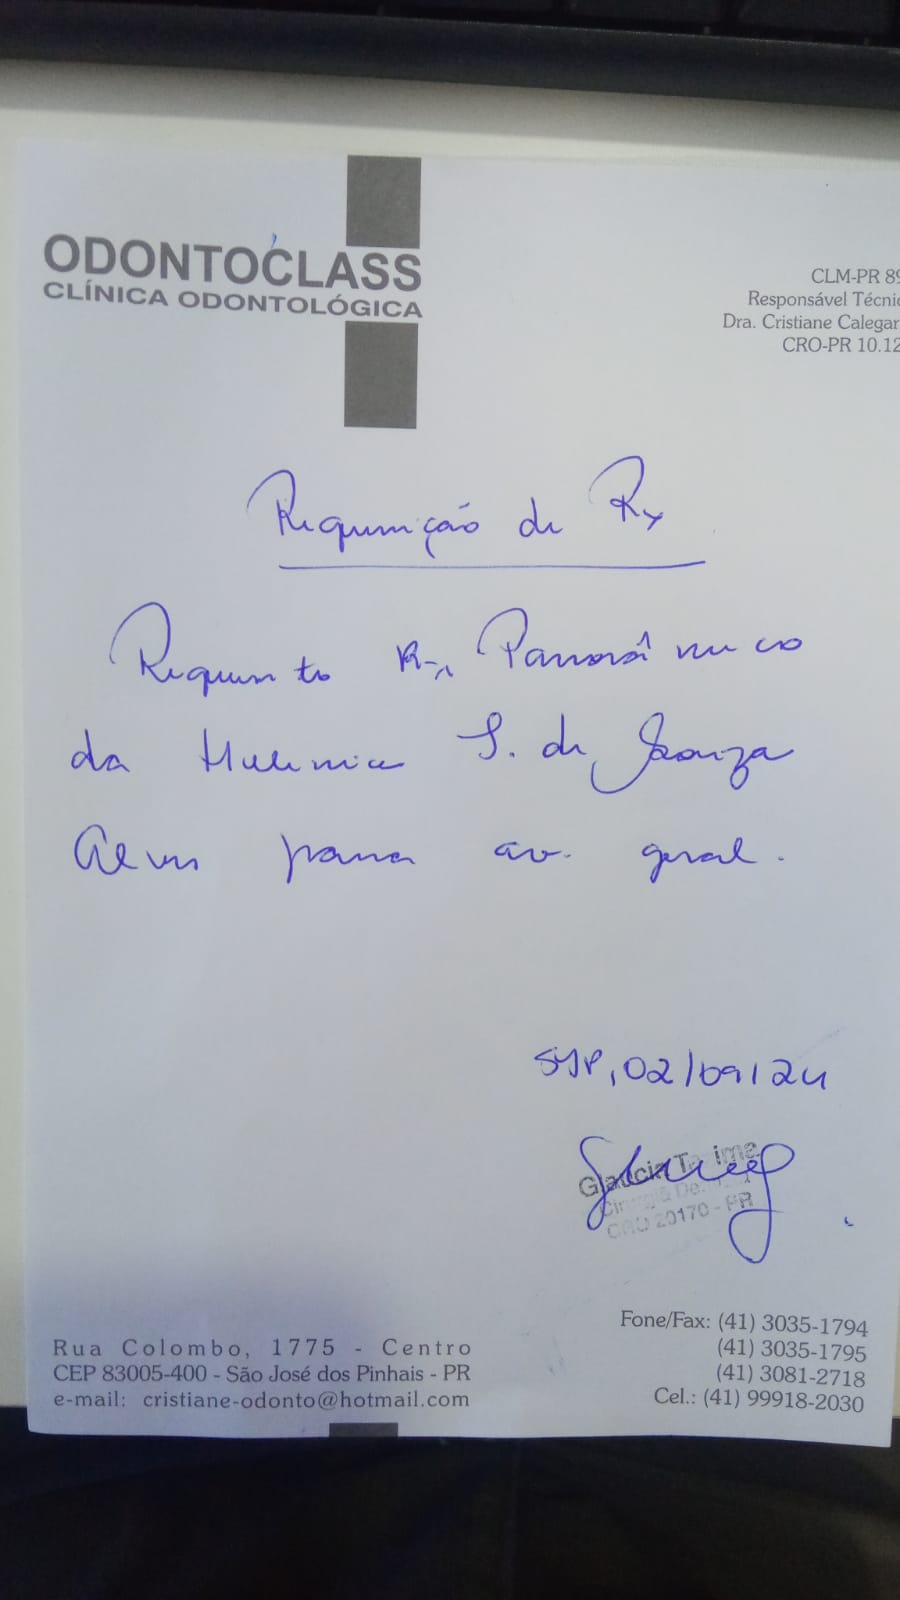 ODONTOCLASS
CLÍNICA ODONTOLÓGICA
CLM-PR 89
Responsável Técnic
Dra. Cristiane Calegar
CRO-PR 10.12
Requisição de Rx
Requisito Rx Panorâmico
da S. de Souza
Alves para av. geral.
SJP, 02/09/24
Glaucia
CRO 20170 - PR
Rua Colombo, 1775 - Centro
CEP 83005-400 - São José dos Pinhais - PR
e-mail: cristiane-odonto@hotmail.com
Fone/Fax: (41) 3035-1794
(41) 3035-1795
(41) 3081-2718
Cel.: (41) 99918-2030